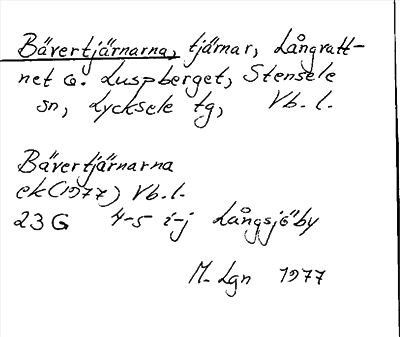 Bävertjärnarna, tjärnar, Långvatt-
net o. Luspberget, Stensele
sn, Lycksele tg, Vb. l.
Bävertjärnarna
ek (1977) Vb. l.
23 G 4-5 i-j Långsjöby
M. Lgn 1977